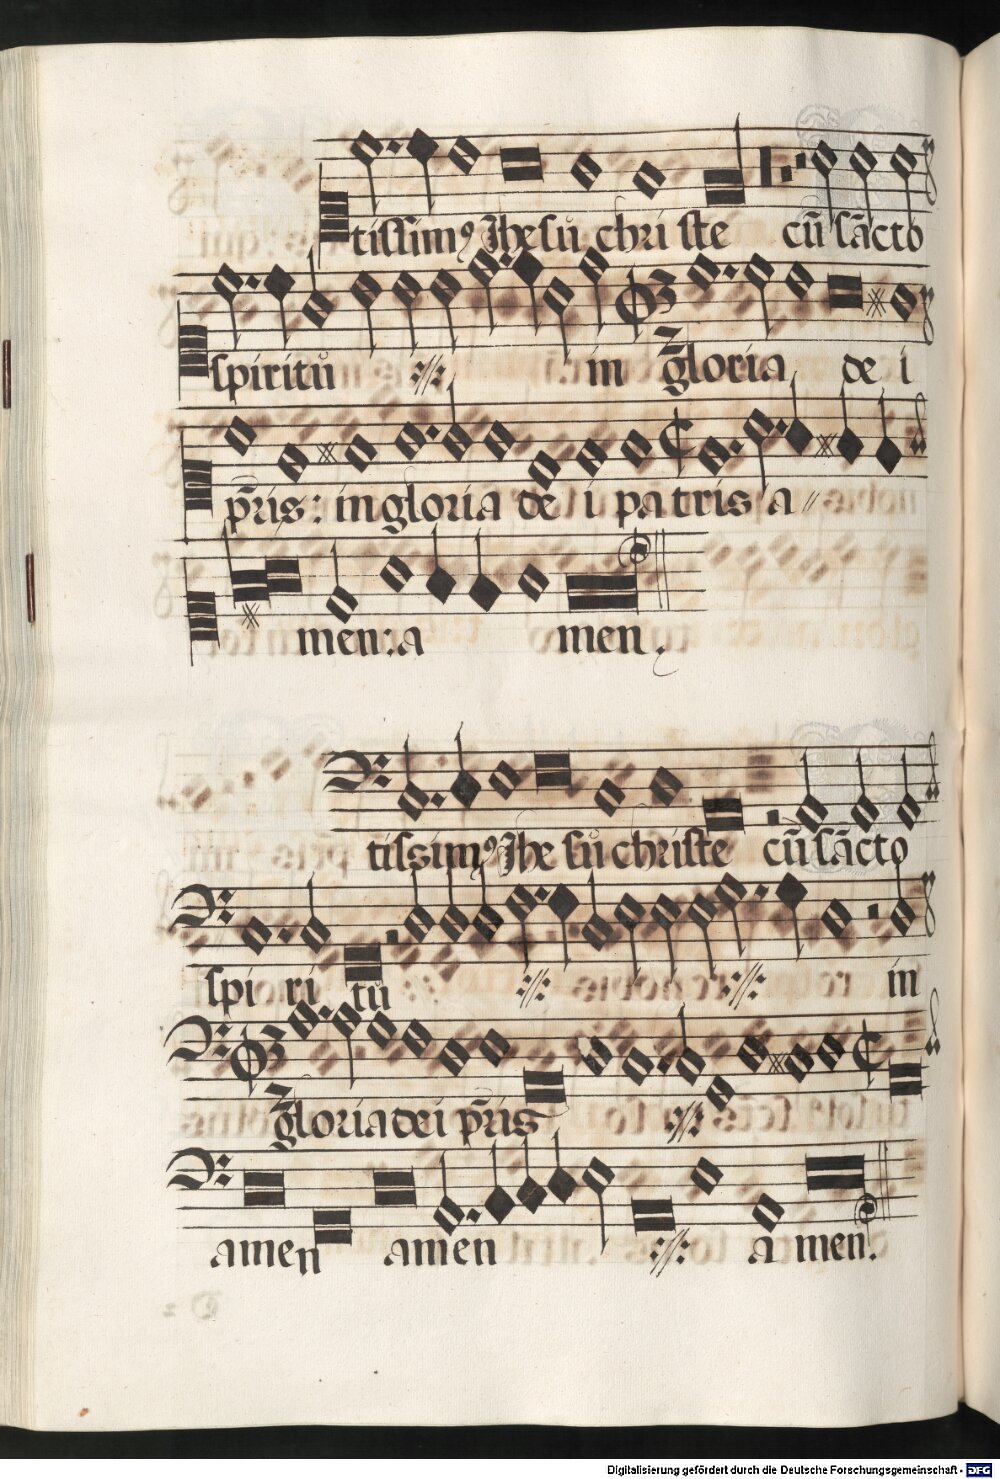 tissimꝰ Jhesu christe cū sācto
spiritu in gloria de i
pr̄is: in gloria de i patris a
men: a men.
tissimꝰ Jhe su christe cū sācto
spi ri tu in
gloria dei pr̄is
amen amen a men.
Digitalisierung gefördert durch die Deutsche Forschungsgemeinschaft - DFG